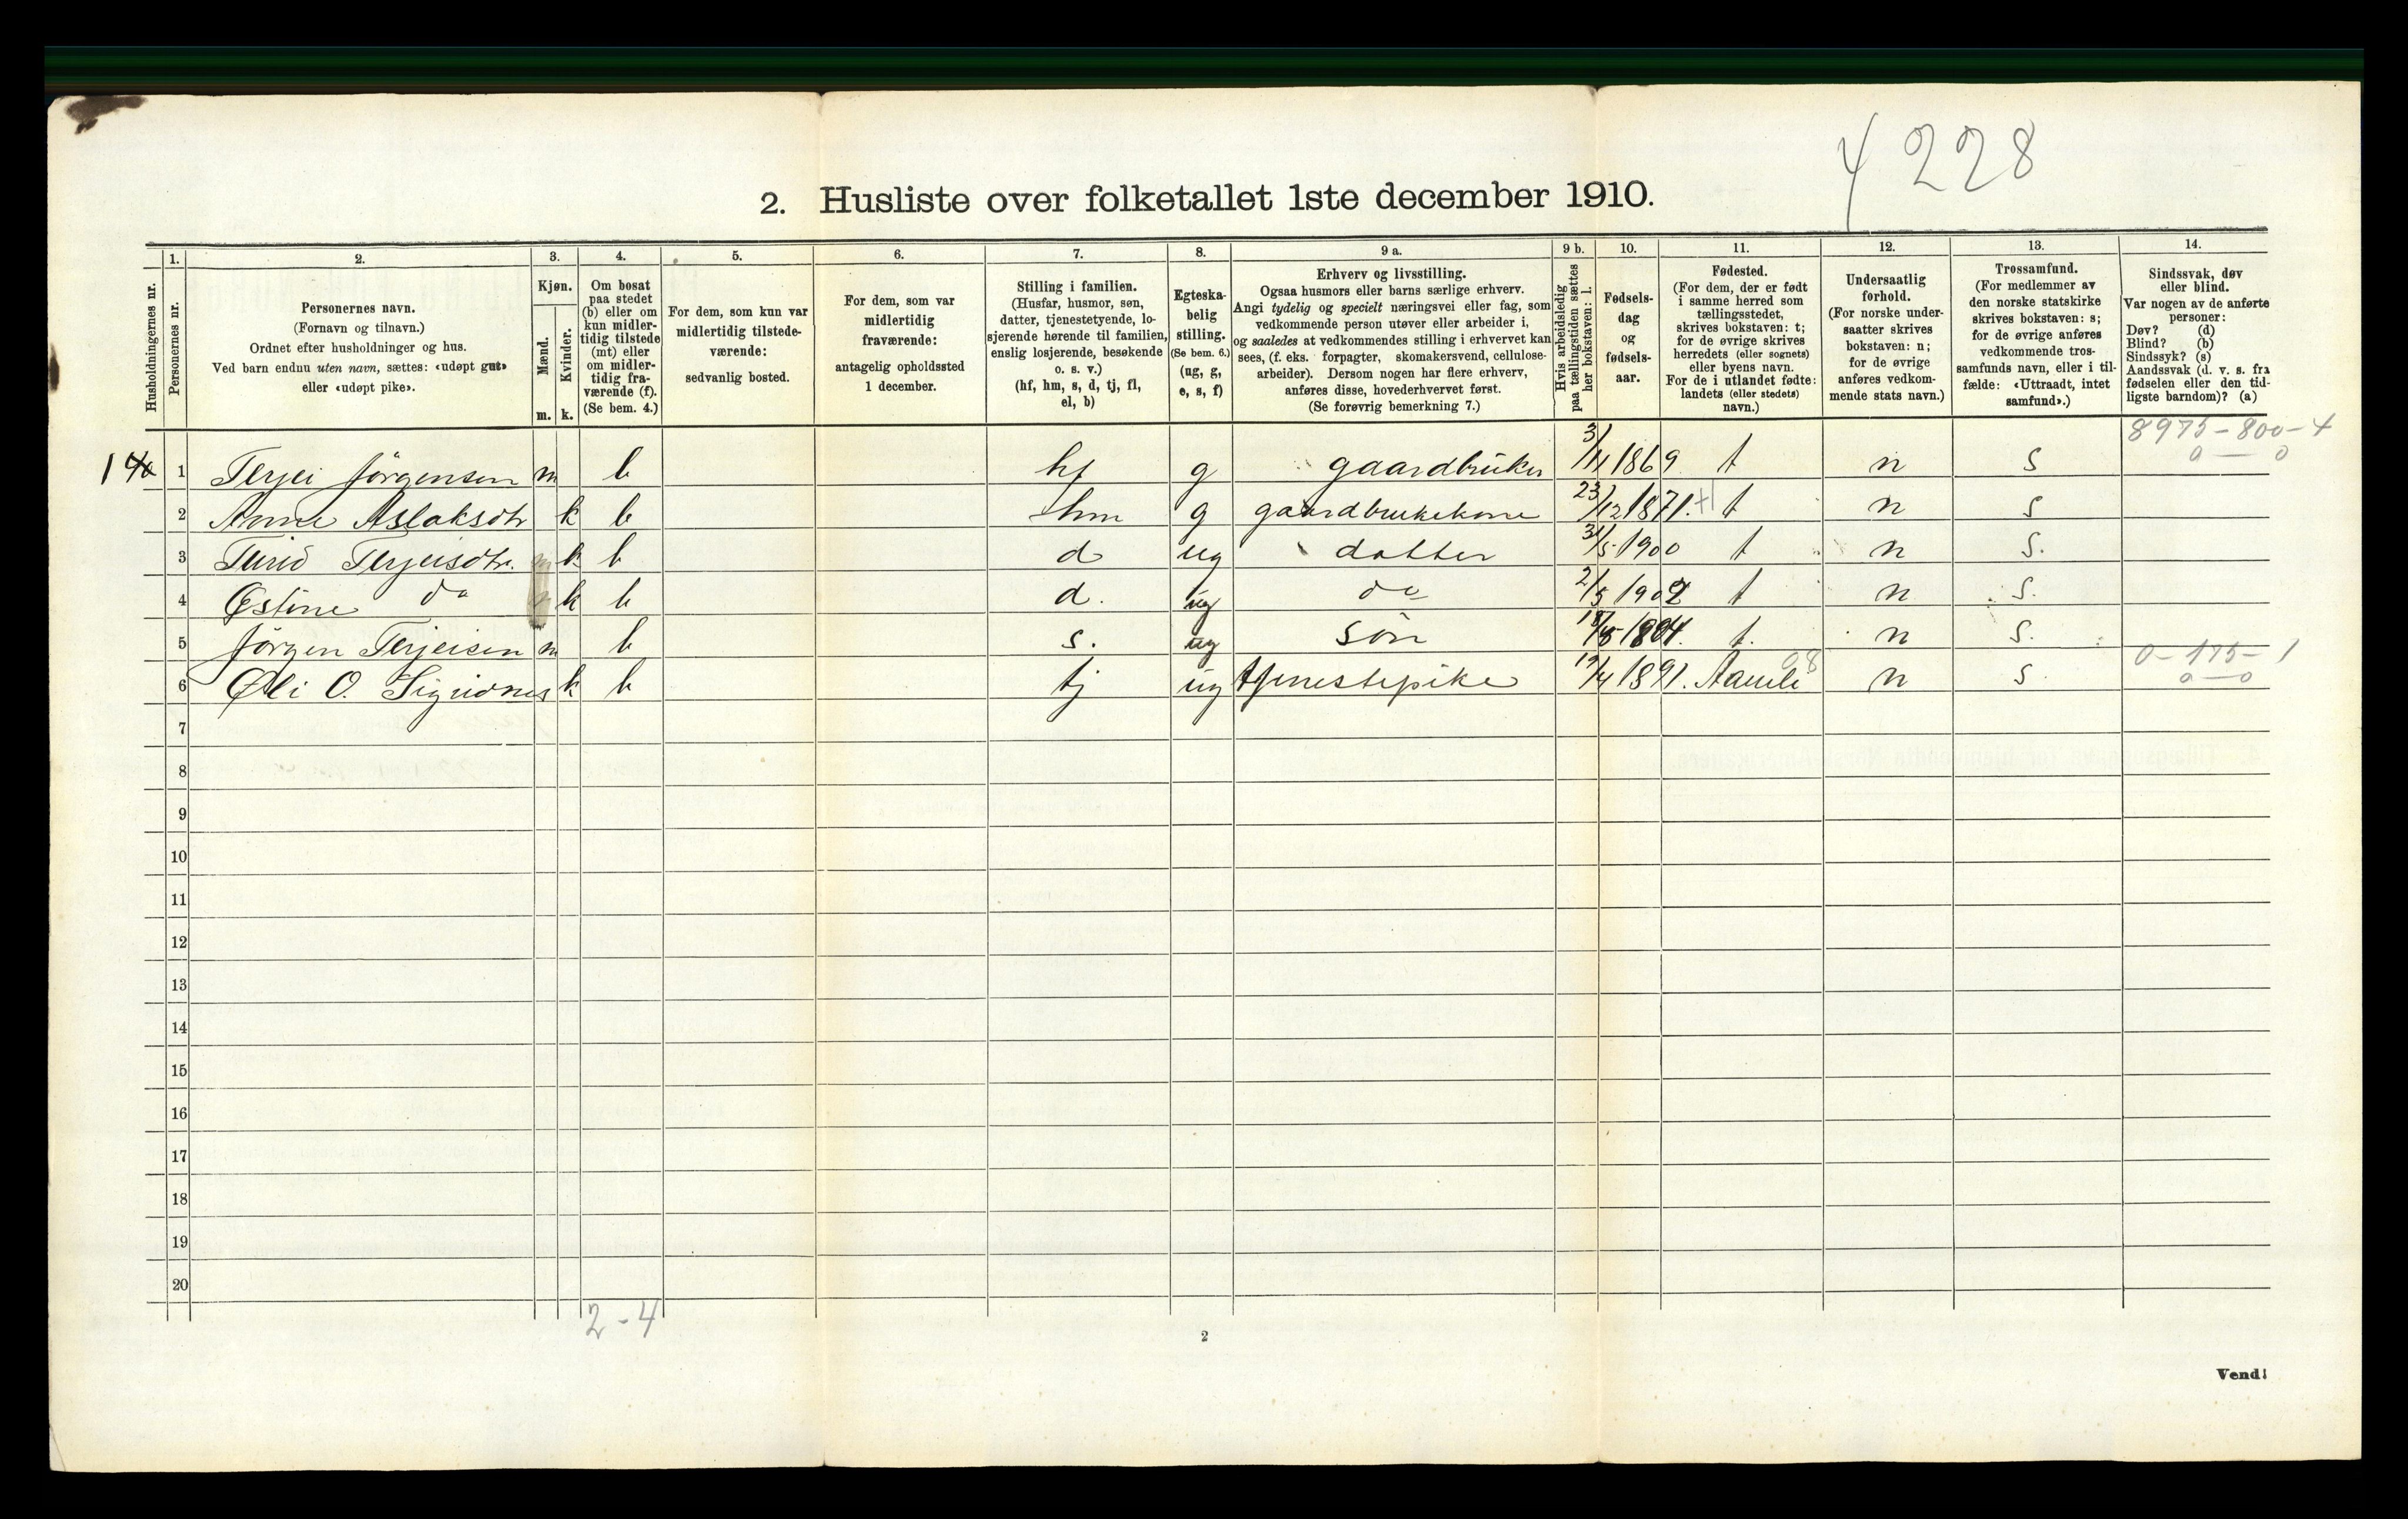 4 228
2. Husliste over folketallet 1ste december 1910.
1. 2. 3. 4. 5. 6. 7. 8. 9 a. 9 b. 10. 11. 12. 13. 14.
Husholdningernes nr.
Personernes nr.
Personernes navn.
(Fornavn og tilnavn.)
Ordnet efter husholdninger og hus.
Ved barn endnu uten navn, sættes: «udøpt gut»
eller «udøpt pike».
Kjøn.
Mænd.
m.
Kvinder.
k.
Om bosat
paa stedet
(b) eller om
kun midler-
tidig tilstede
(mt) eller
om midler-
tidig fra-
værende (f).
(Se bem. 4.)
For dem, som kun var
midlertidig tilstede-
værende:
sedvanlig bosted.
For dem, som var
midlertidig
fraværende:
antagelig opholdssted
1 december.
Stilling i familien.
(Husfar, husmor, søn,
datter, tjenestetyende, lo-
sjerende hørende til familien,
enslig losjerende, besøkende
o. s. v.)
(hf, hm, s, d, tj, fl,
el, b)
Egteska-
belig
stilling.
(Se bem. 6.)
(ug, g,
e, s, f)
Erhverv og livsstilling.
Ogsaa husmors eller barns særlige erhverv.
Angi tydelig og specielt næringsvei eller fag, som
vedkommende person utøver eller arbeider i,
og saaledes at vedkommendes stilling i erhvervet kan
sees, (f. eks. forpagter, skomakersvend, cellulose-
arbeider). Dersom nogen har flere erhverv,
anføres disse, hovederhvervet først.
(Se forøvrig bemerkning 7.)
Hvis arbeidsledig
paa tællingstiden sættes
her bokstaven: l.
Fødsels-
dag
og
fødsels-
aar.
Fødested.
(For dem, der er født
i samme herred som
tællingsstedet,
skrives bokstaven: t;
for de øvrige skrives
herredets (eller sognets)
eller byens navn.
For de i utlandet fødte:
landets (eller stedets)
navn.)
Undersaatlig
forhold.
(For norske under-
saatter skrives
bokstaven: n;
for de øvrige
anføres vedkom-
mende stats navn.)
Trossamfund.
(For medlemmer av
den norske statskirke
skrives bokstaven: s;
for de øvrige anføres
vedkommende tros-
samfunds navn, eller i til-
fælde: «Uttraadt, intet
samfund».)
Sindssvak, døv
eller blind.
Var nogen av de anførte
personer:
Døv? (d)
Blind? (b)
Sindssyk? (s)
Aandssvak (d. v. s. fra
fødselen eller den tid-
ligste barndom)? (a)
8975-800-4
0 — 0
1 1 Terjei Jörgensen m b hf g gaardbruker 3/11 1869 t n s
2 Anne Aslaksdtr k b hm g gaardbrukekone 23/12 1871. t n s
3 Turid Terjeisdtr. k b d ug datter 31/5 1900 t n s.
4 Østine do k b d. ug do 2/5 1902 t n s.
5 Jörgen Terjeisen m b s. ug sön t. n s.
0-175-1
0 — 0
6 Øli O. Sigridnes k b tj ug tjenestepike 19/4 1891. Aamli 98 n s.
7
8
9
10
11
12
13
14
15
16
17
18
19
20
2-4
2
Vend!